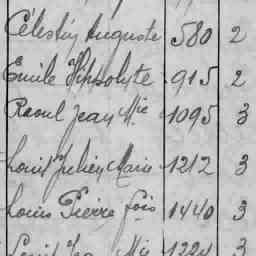 Célestin Auguste 580 2
Emile Hippolyte 915 2
Raoul Jean Mie 1095 3
Louis Julien Marie 1212 3
Louis Pierre fois 1440 3
Louis 1224 3